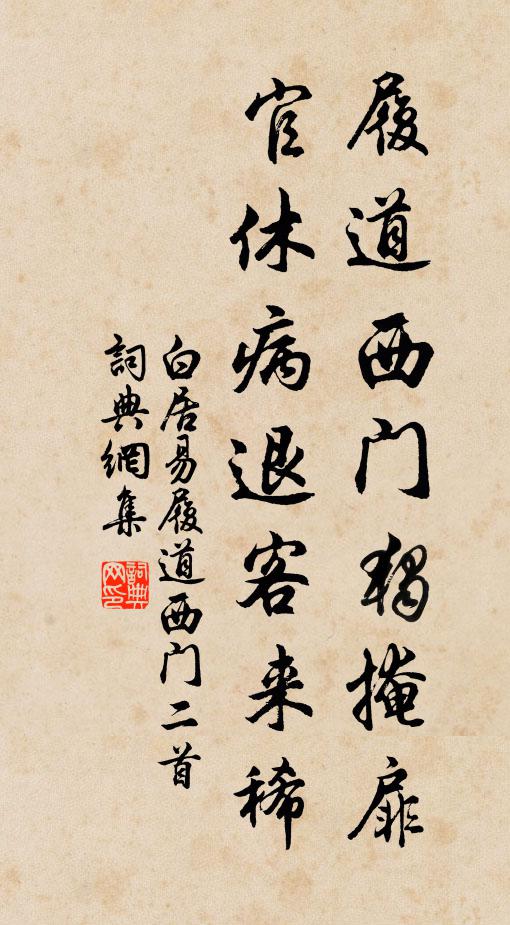 履道西门獨掩扉
官休病退客来稀
白居易履道西门二首
詞典網集
詞典网印